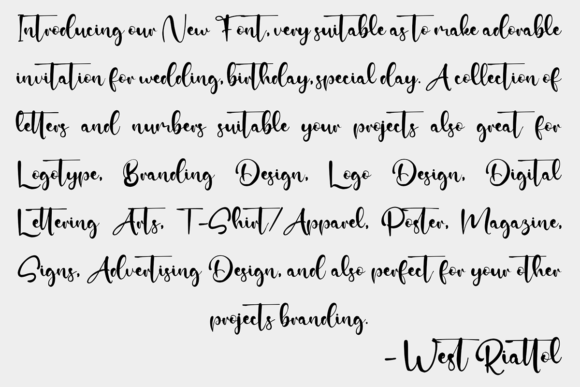 Introducing our New Font, very suitable as to make adorable
invitation for wedding, birthday, special day. A collection of
letters and numbers suitable your projects also great for
Logotype, Branding Design, Logo Design, Digital
Lettering Arts, T-Shirt/Apparel, Poster, Magazine,
Signs, Advertising Design, and also perfect for your other
projects branding.
- West Riattol